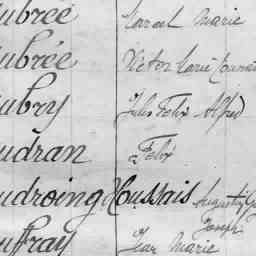 ubrée Marcel Marie
ubrée Victor Marie
ubry Jules Felix Alfred
udran Felix
udroing Houssais Augustin
Joseph
uffray Jean Marie